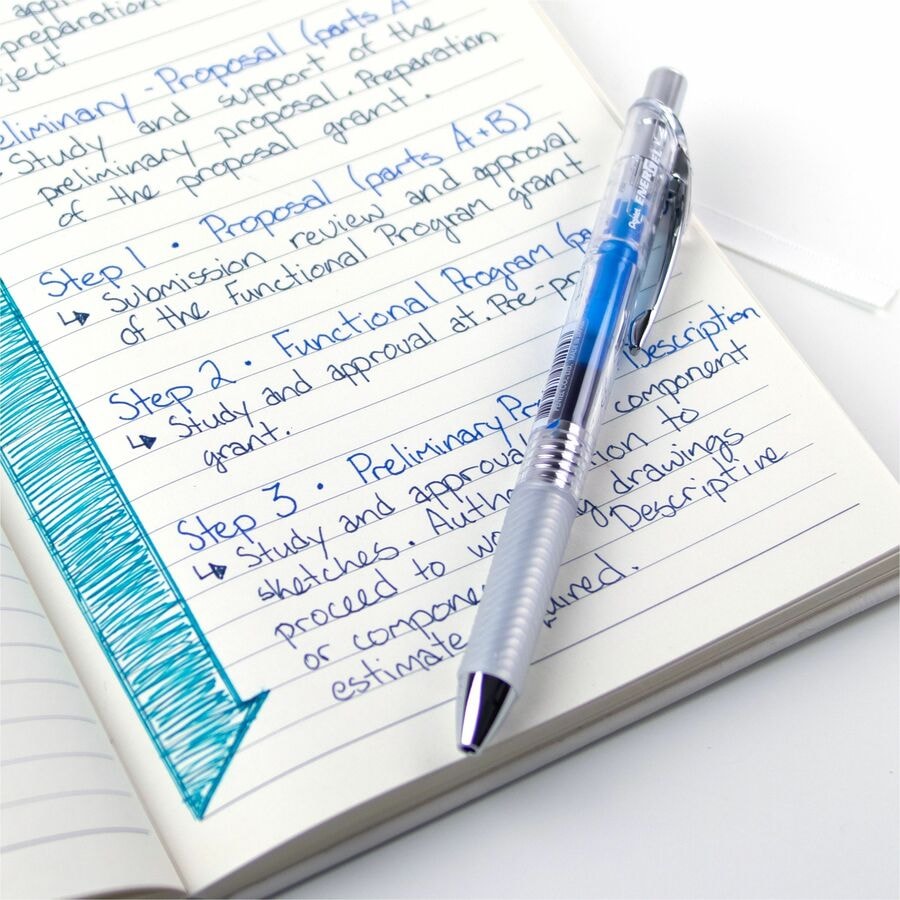 preparation
Preliminary - Proposal (parts A
Study and support of the
preliminary proposal. Preparation
of the proposal grant.
Step 1 • Proposal (parts A+B)
↳ Submission review and approval
of the Functional Program grant
Step 2 • Functional Program (pa
↳ Study and approval at. Pre-pr
grant.
Step 3 • Preliminary Pr Description
↳ Study and approval component
sketches. Auth ion to
proceed to wo g drawings
or compone Descriptive
estimate uired.
Pentel ENERGEL